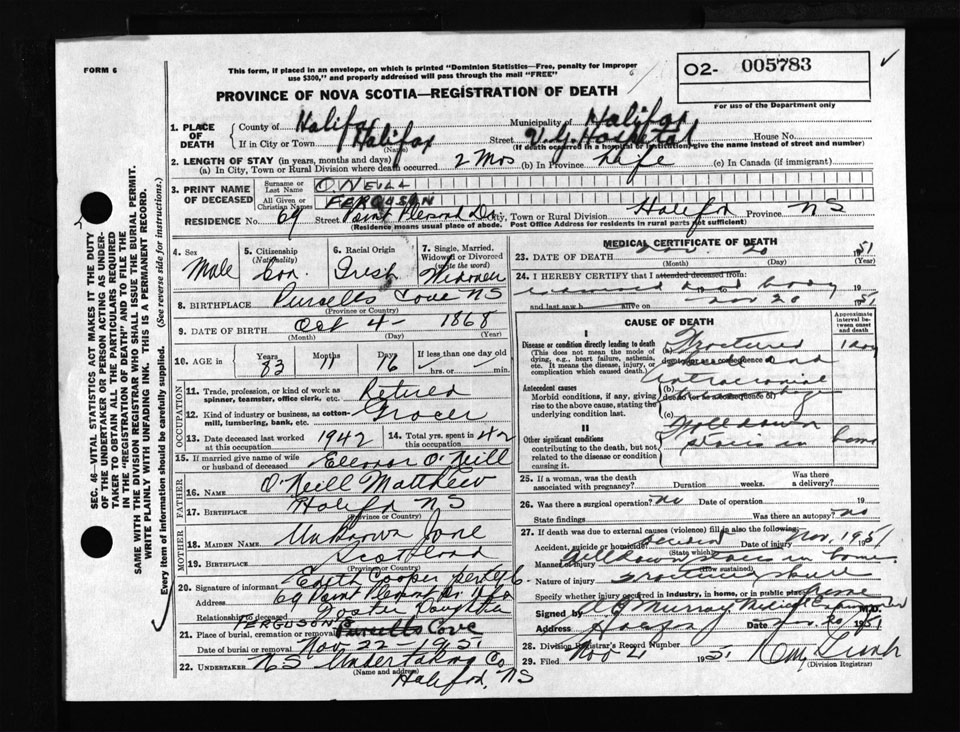 FORM 6
This form, if placed in an envelope, on which is printed "Dominion Statistics—Free, penalty for improper
use $300," and properly addressed will pass through the mail "FREE"
O2- 005783
PROVINCE OF NOVA SCOTIA—REGISTRATION OF DEATH
For use of the Department only
1. PLACE OF DEATH
County of Halifax Municipality of Halifax
If in City or Town Halifax Street V.G. Hospital House No.
(Name) (If death occurred in a hospital or institution, give the name instead of street and number)
2. LENGTH OF STAY (in years, months and days)
(a) In City, Town or Rural Division where death occurred 2 Mos (b) In Province Life (c) In Canada (if immigrant)
3. PRINT NAME OF DECEASED
Surname or Last Name O'NEILL
All Given or Christian Names FERGUSON
RESIDENCE No. 69 Street Point Pleasant Dr City, Town or Rural Division Halifax Province NS
(Residence means usual place of abode. Post Office Address for residents in rural parts not sufficient)
4. Sex Male
5. Citizenship (Nationality) Can.
6. Racial Origin Irish
7. Single, Married, Widowed or Divorced (write the word) Widower
8. BIRTHPLACE Purcells Cove NS
(Province or Country)
9. DATE OF BIRTH Oct 4 - 1868
(Month) (Day) (Year)
10. AGE in Years 83 Months 11 Days 16 If less than one day old hrs. or min.
OCCUPATION
11. Trade, profession, or kind of work as spinner, teamster, office clerk, etc. Retired
12. Kind of industry or business, as cotton-mill, lumbering, bank, etc. Grocer
13. Date deceased last worked at this occupation 1942
14. Total yrs. spent in this occupation 42
15. If married give name of wife or husband of deceased Eleanor O'Neill
FATHER
16. NAME O'Neill Matthew
17. BIRTHPLACE Halifax NS
(Province or Country)
MOTHER
18. MAIDEN NAME Unknown Jane
19. BIRTHPLACE Scotland
(Province or Country)
20. Signature of informant Edith Cooper
Address 69 Point Pleasant Dr Hfx
Relationship to deceased Foster Daughter
FERGUSON'S
21. Place of burial, cremation or removal Purcells Cove
Date of burial or removal Nov - 22 - 1951
22. UNDERTAKER N S Undertaking Co
(Name and address)
Halifax, NS
MEDICAL CERTIFICATE OF DEATH
23. DATE OF DEATH Nov. 20 1951
(Month) (Day) (Year)
24. I HEREBY CERTIFY that I attended deceased from
examined dead body 19
and last saw h alive on Nov 20 1951
CAUSE OF DEATH
Approximate interval between onset and death
I
Disease or condition directly leading to death
(This does not mean the mode of dying, e.g., heart failure, asthenia, etc. It means the disease, injury, or complication which caused death.)
(a) Fractured 1 day
due to (or as a consequence of)
Antecedent causes
Morbid conditions, if any, giving rise to the above cause, stating the underlying condition last.
(b) Intracranial
due to (or as a consequence of)
(c)
II
Other significant conditions contributing to the death, but not related to the disease or condition causing it.
Fell down
stairs in home
25. If a woman, was the death associated with pregnancy? Duration weeks. Was there a delivery?
26. Was there a surgical operation? no Date of operation 19
State findings Was there an autopsy? no
27. If death was due to external causes (violence) fill in also the following:
Accident, suicide or homicide? Accident Date of injury Nov. 1951
(State which)
Manner of injury Fell down stairs in home
(How sustained)
Nature of injury Fracture skull
Specify whether injury occurred in industry, in home, or in public place Home
Signed by Murray Medical Examiner M.D.
Address Halifax Date Nov. 20 1951
28. Division Registrar's Record Number
29. Filed Nov 1951
(Division Registrar)
SEC. 46—VITAL STATISTICS ACT MAKES IT THE DUTY
OF THE UNDERTAKER OR PERSON ACTING AS UNDER-
TAKER TO OBTAIN ALL THE PARTICULARS REQUIRED
IN THE "REGISTRATION OF DEATH" AND TO FILE THE
SAME WITH THE DIVISION REGISTRAR WHO SHALL ISSUE THE BURIAL PERMIT.
WRITE PLAINLY WITH UNFADING INK. THIS IS A PERMANENT RECORD.
Every item of information should be carefully supplied. (See reverse side for instructions.)